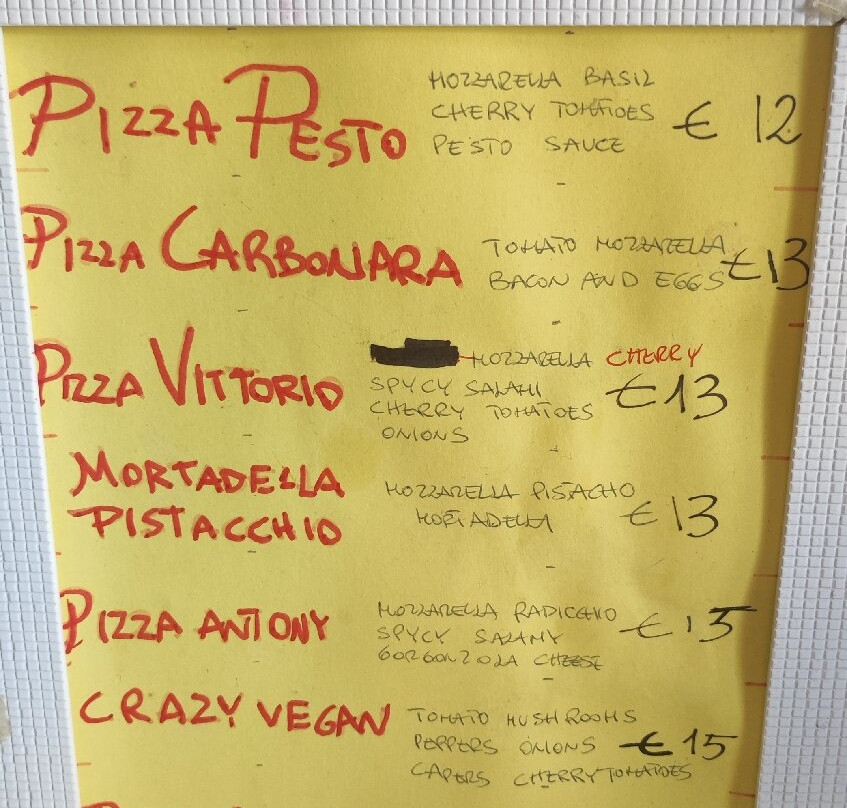 PIZZA PESTO
MOZZARELLA BASIL
CHERRY TOMATOES
PESTO SAUCE
€ 12
PIZZA CARBONARA
TOMATO MOZZARELLA
BACON AND EGGS
€13
PIZZA VITTORIO
MOZZARELLA CHERRY
SPYCY SALAMI
CHERRY TOMATOES
ONIONS
€13
MORTADELLA
PISTACCHIO
MOZZARELLA PISTACHO
MORTADELLA
€13
PIZZA ANTONY
MOZZARELLA RADICCHIO
SPYCY SALAMY
GORGONZOLA CHEESE
€15
CRAZY VEGAN
TOMATO MUSHROOMS
PEPPERS ONIONS
CAPERS CHERRY TOMATOES
€15